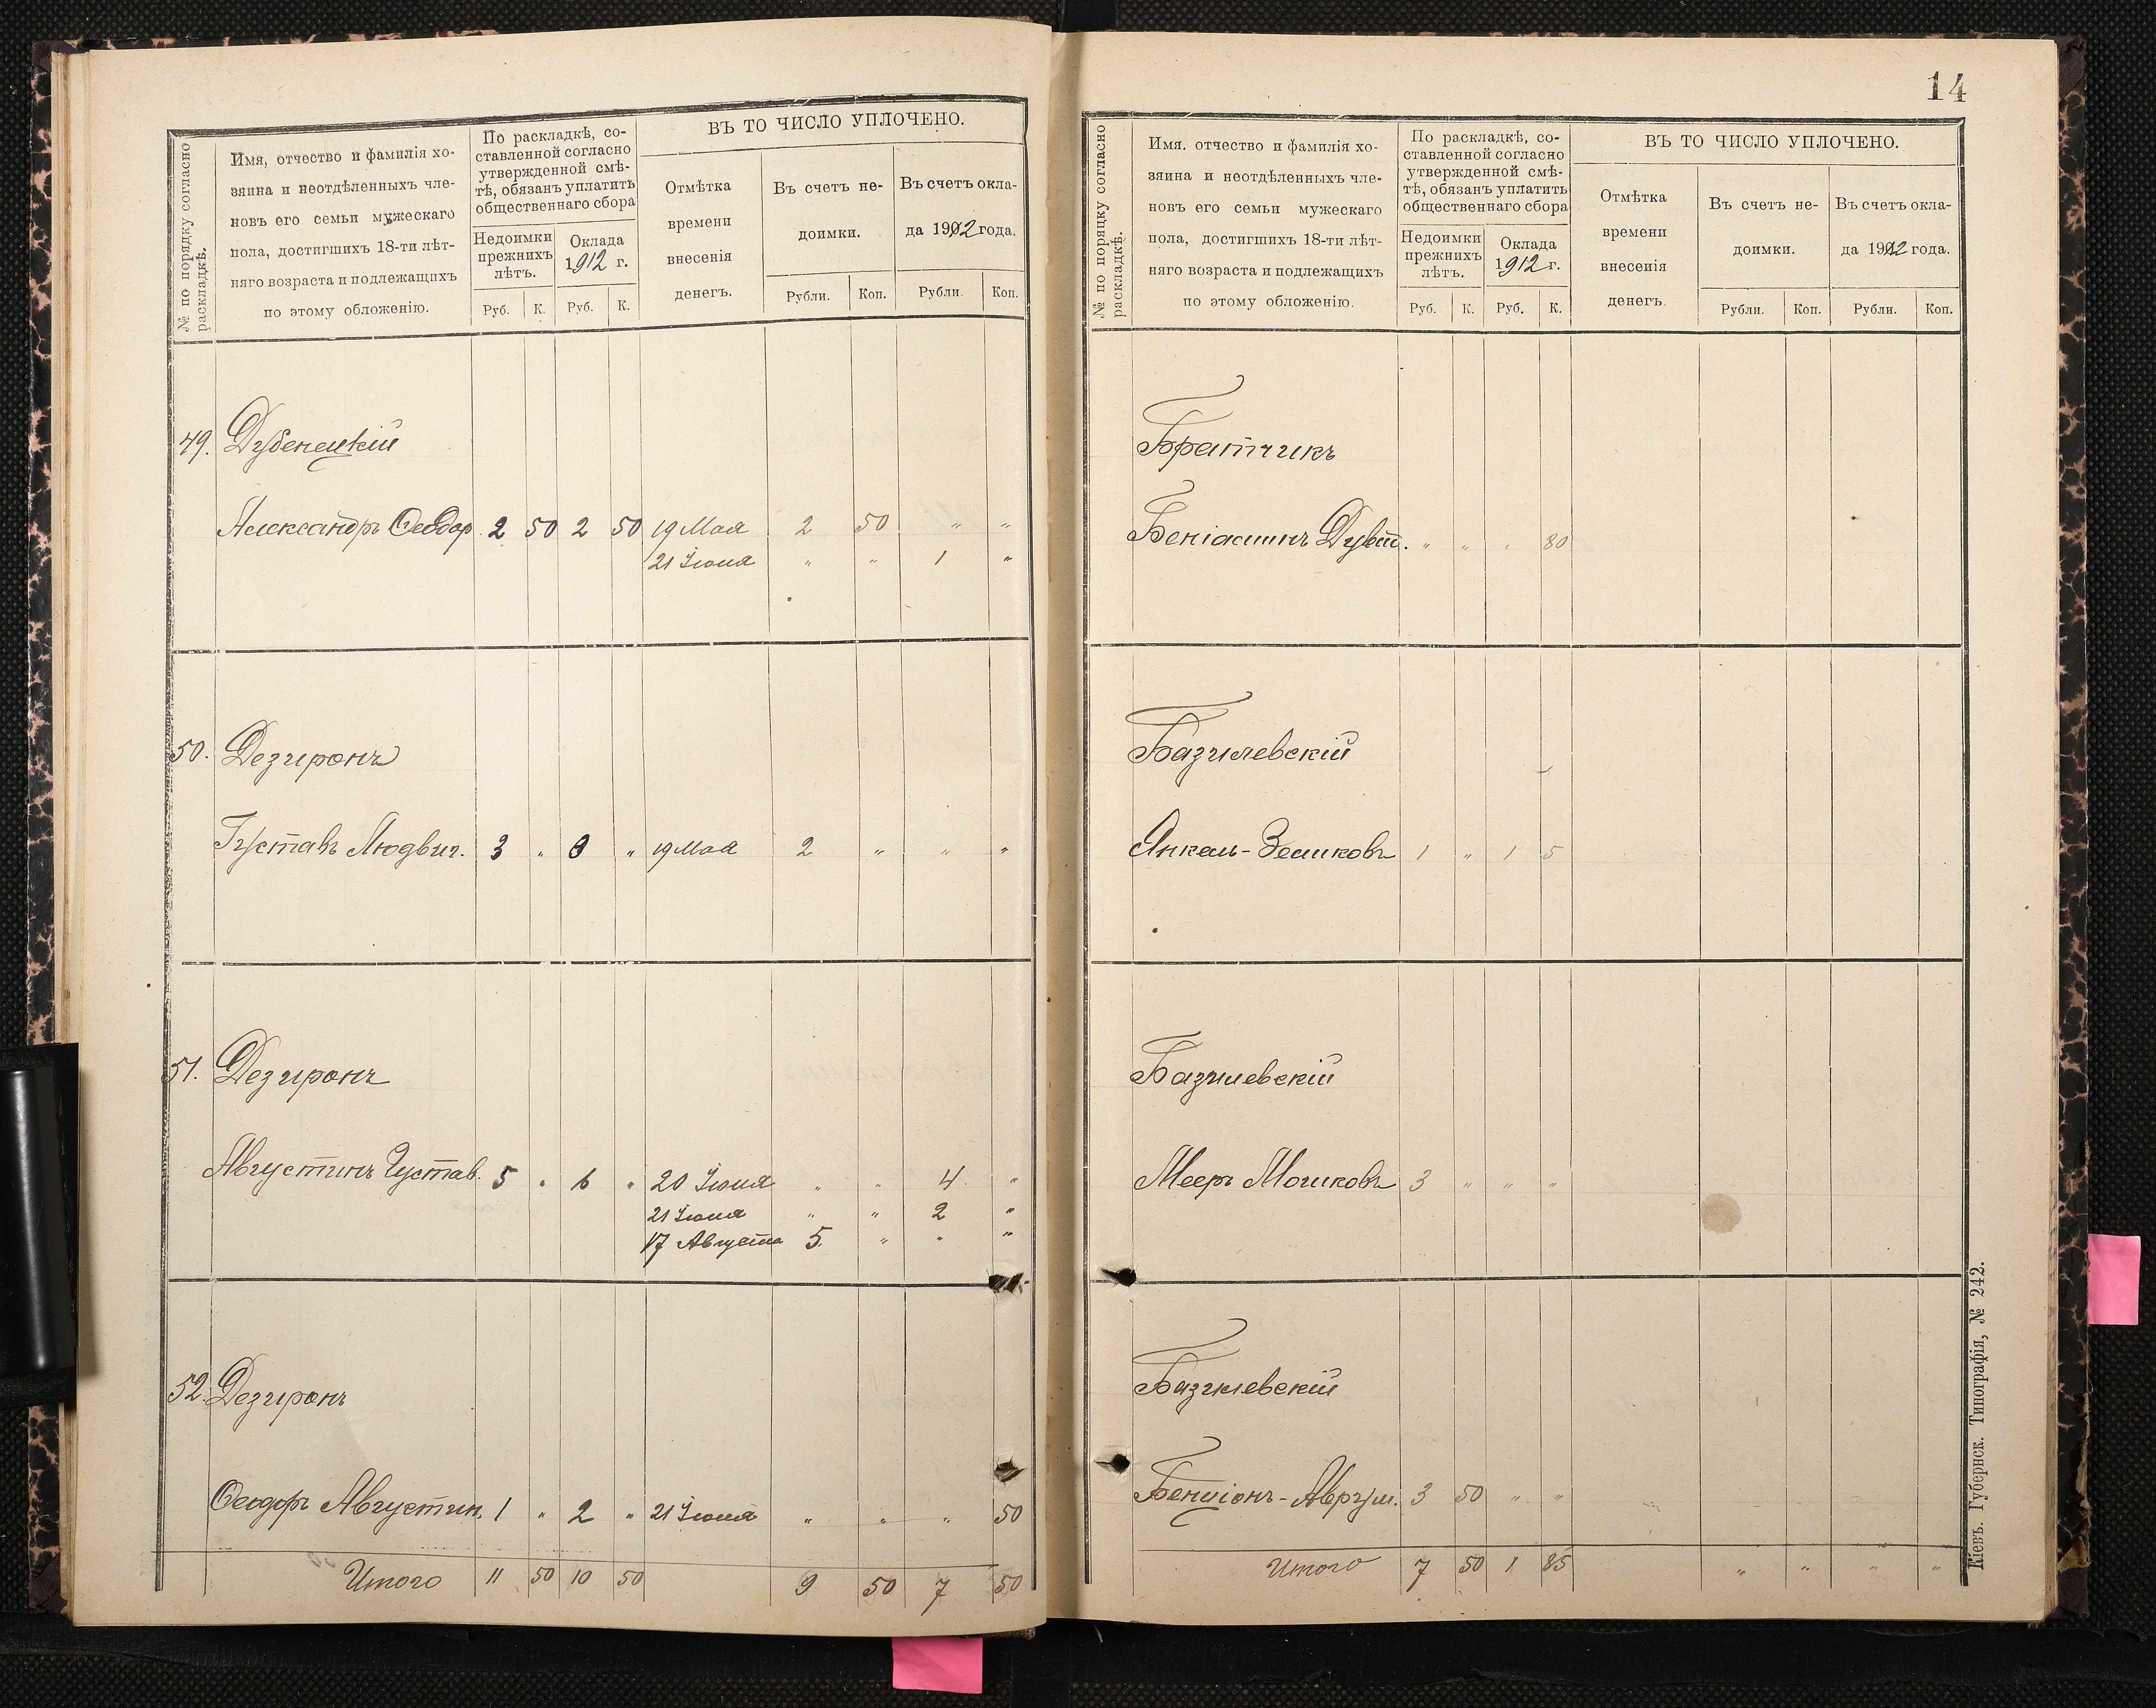 № по порядку согласно раскладкѣ.
Имя, отчество и фамилія хо-
зяина и неотдѣленныхъ чле-
новъ его семьи мужескаго
пола, достигшихъ 18-ти лѣт-
няго возраста и подлежащихъ
по этому обложенію.
По раскладкѣ, со-
ставленной согласно
утвержденной смѣ-
тѣ, обязанъ уплатить
общественнаго сбора
Недоимки
прежнихъ
лѣтъ.
Оклада
1912 г.
Руб. К. Руб. К.
ВЪ ТО ЧИСЛО УПЛОЧЕНО.
Отмѣтка
времени
внесенія
денегъ.
Въ счетъ не-
доимки.
Въ счетъ окла-
да 1912 года.
Рубли. Коп. Рубли. Коп.
49. Дубенецкій
Александръ Ѳеодор. 2 50 2 50 19 Мая 2 50 " "
21 Іюня " " 1 "
50. Дезиронъ
Густавъ Людвиг. 3 " 0 " 19 Мая 2 " " "
51. Дезиронъ
Августинъ Густав. 5 " 6 " 20 Іюня " " 4 "
21 Іюня " " 2 "
17 Августа 5 " " "
52. Дезиронъ
Ѳеодоръ Августин. 1 " 2 " 21 Іюня " " " 50
Итого 11 50 10 50 9 50 7 50
14
№ по порядку согласно раскладкѣ.
Имя. отчество и фамилія хо-
зяина и неотдѣленныхъ чле-
новъ его семьи мужескаго
пола, достигшихъ 18-ти лѣт-
няго возраста и подлежащихъ
по этому обложенію.
По раскладкѣ, со-
ставленной согласно
утвержденной смѣ-
тѣ, обязанъ уплатить
общественнаго сбора
Недоимки
прежнихъ
лѣтъ.
Оклада
1912 г.
Руб. К. Руб. К.
ВЪ ТО ЧИСЛО УПЛОЧЕНО.
Отмѣтка
времени
внесенія
денегъ.
Въ счетъ не-
доимки.
Въ счетъ окла-
да 1912 года.
Рубли. Коп. Рубли. Коп.
Братчикъ
Беніаминъ Дувид. " " " 80
Базилевскій
Янкель-Зеликовъ 1 " 1 5
Базилевскій
Мееръ Мошковъ 3 " " "
Базилевскій
Бенціонъ-Аврум. 3 50 " "
Итого 7 50 1 85 " " " "
Кіевъ. Губернск. Типографія, № 242.